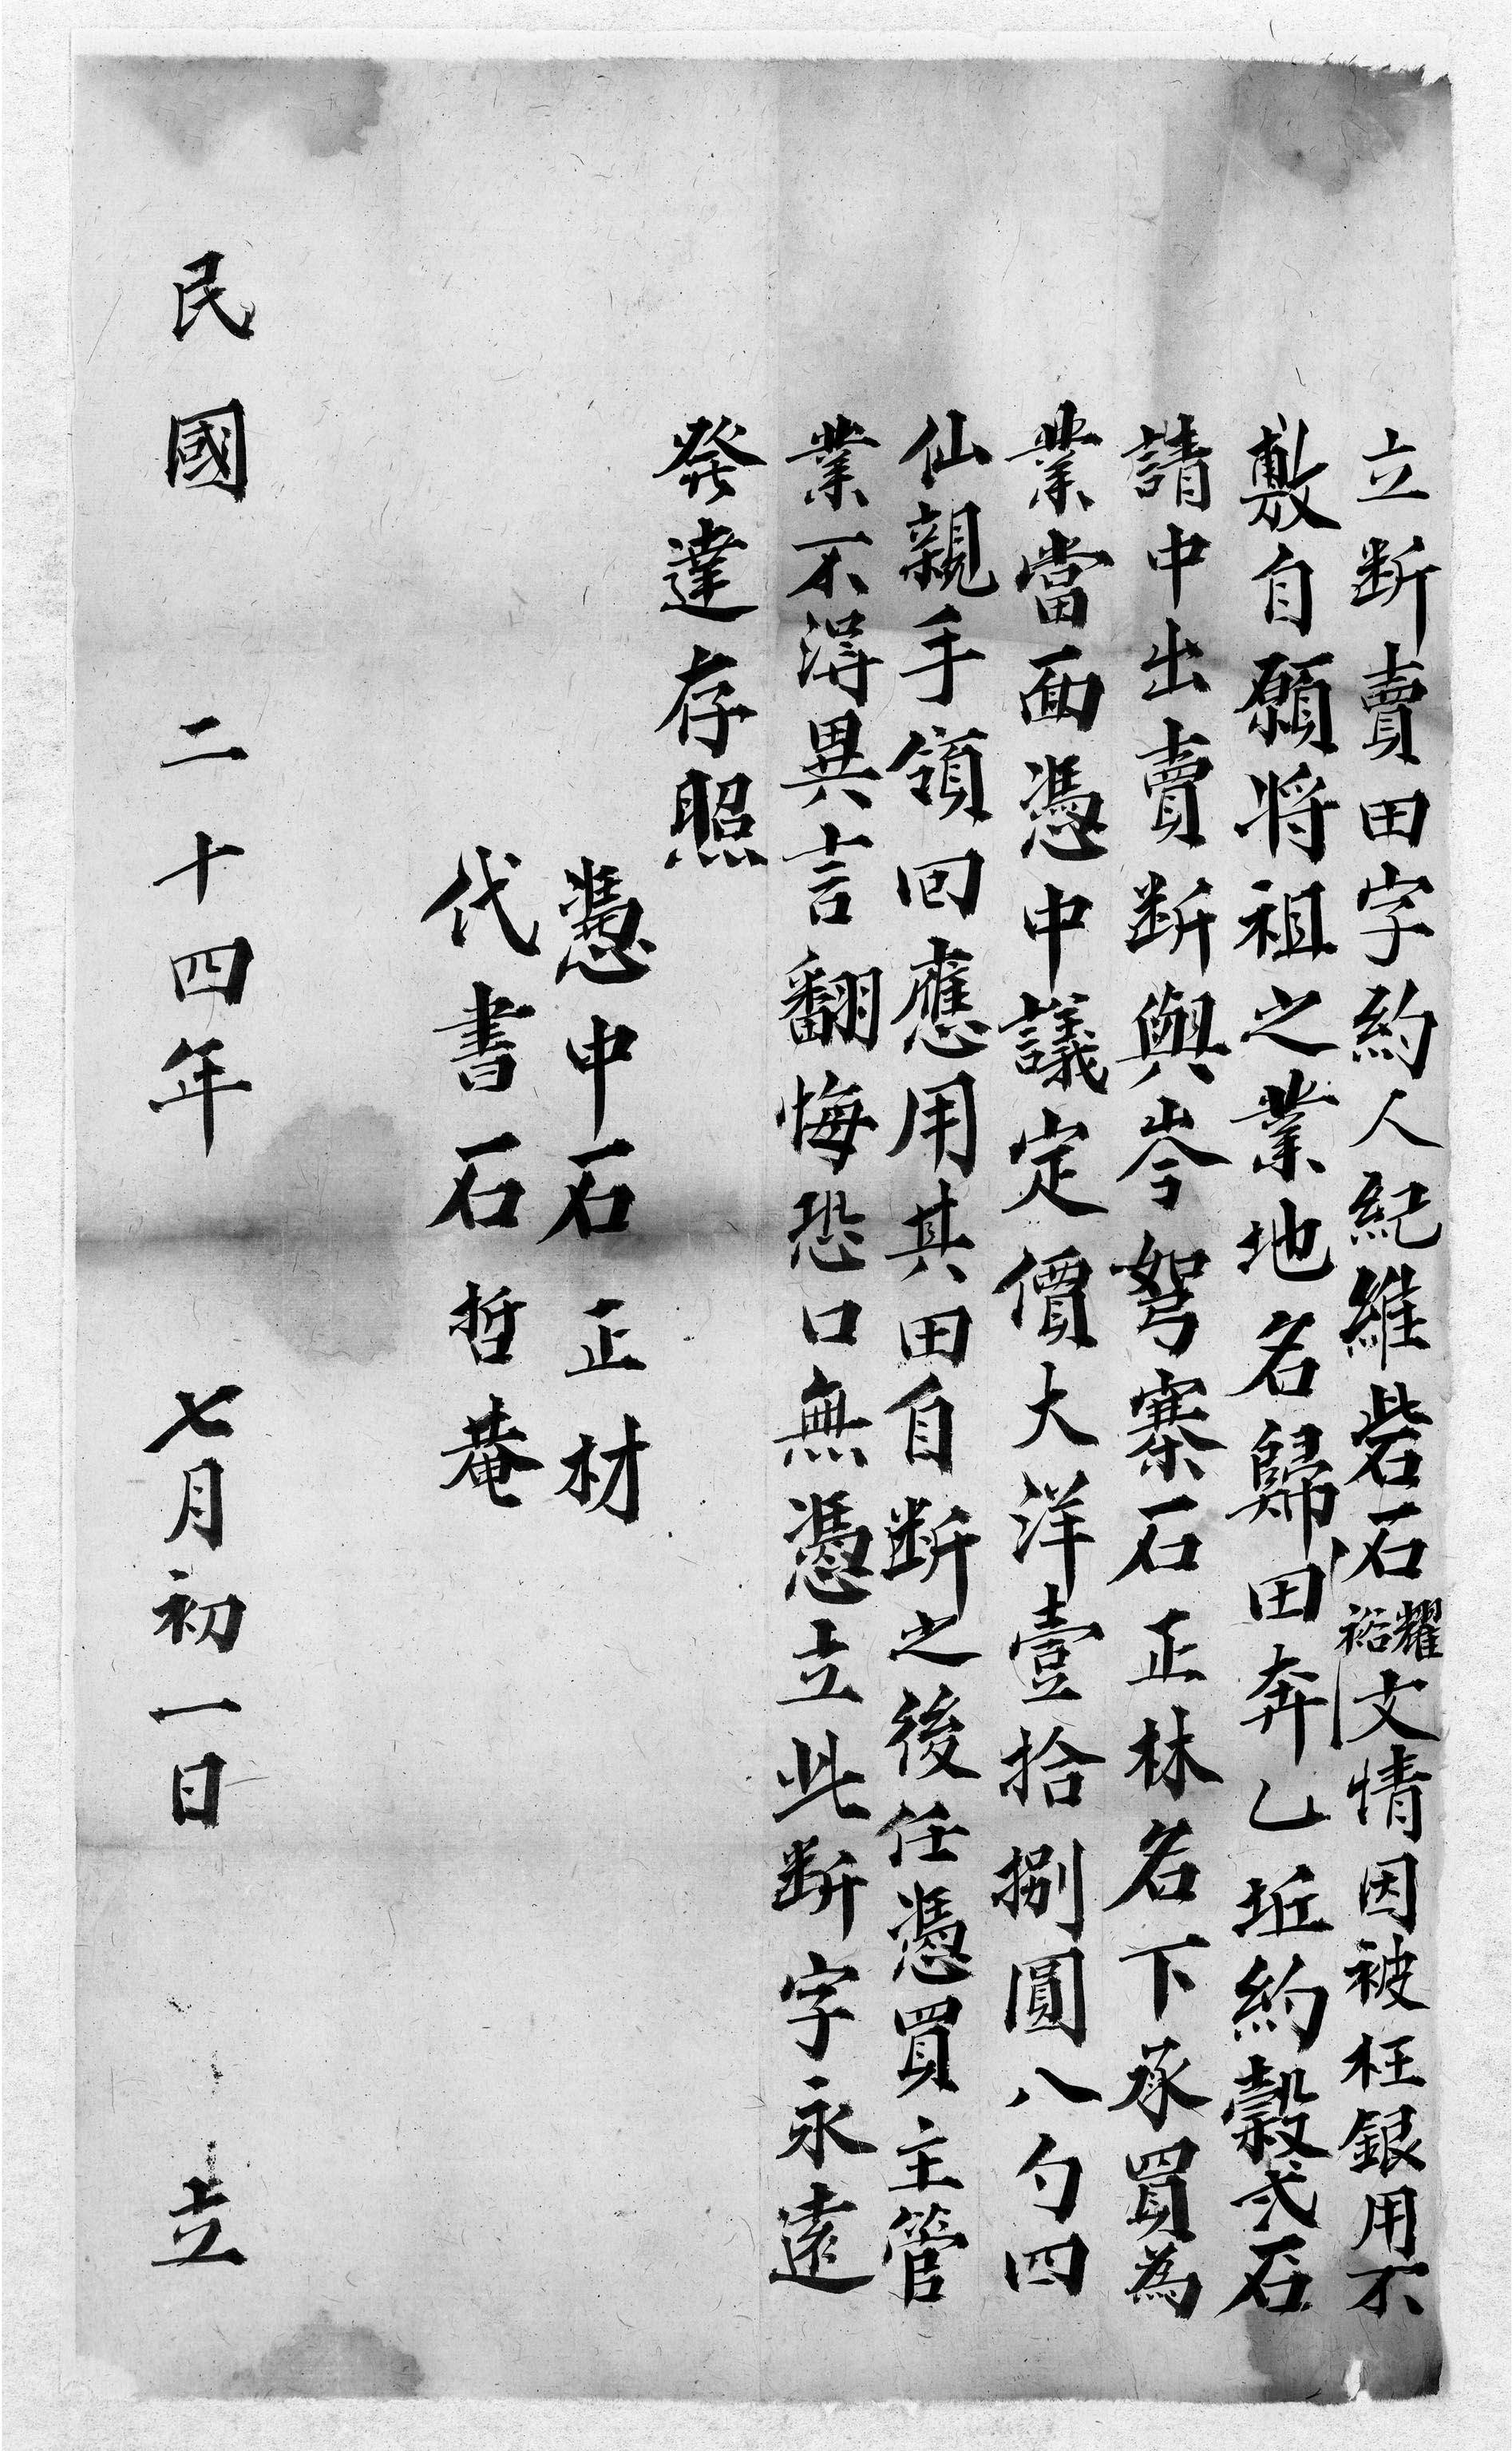 立断賣田字約人紀維砦石耀裕文情因被枉銀用不
敷自願将祖之業地名歸田奔乙坵約穀弍石
請中出賣断與岑弩寨石正林名下承買為
業當面憑中議定價大洋壹拾捌圓八勺四
仙親手領回應用其田自断之後任憑買主管
業不淂異言翻悔恐口無憑立此断字永遠
發達存照
憑中石正材
代書石哲菴
民國二十四年七月初一日立